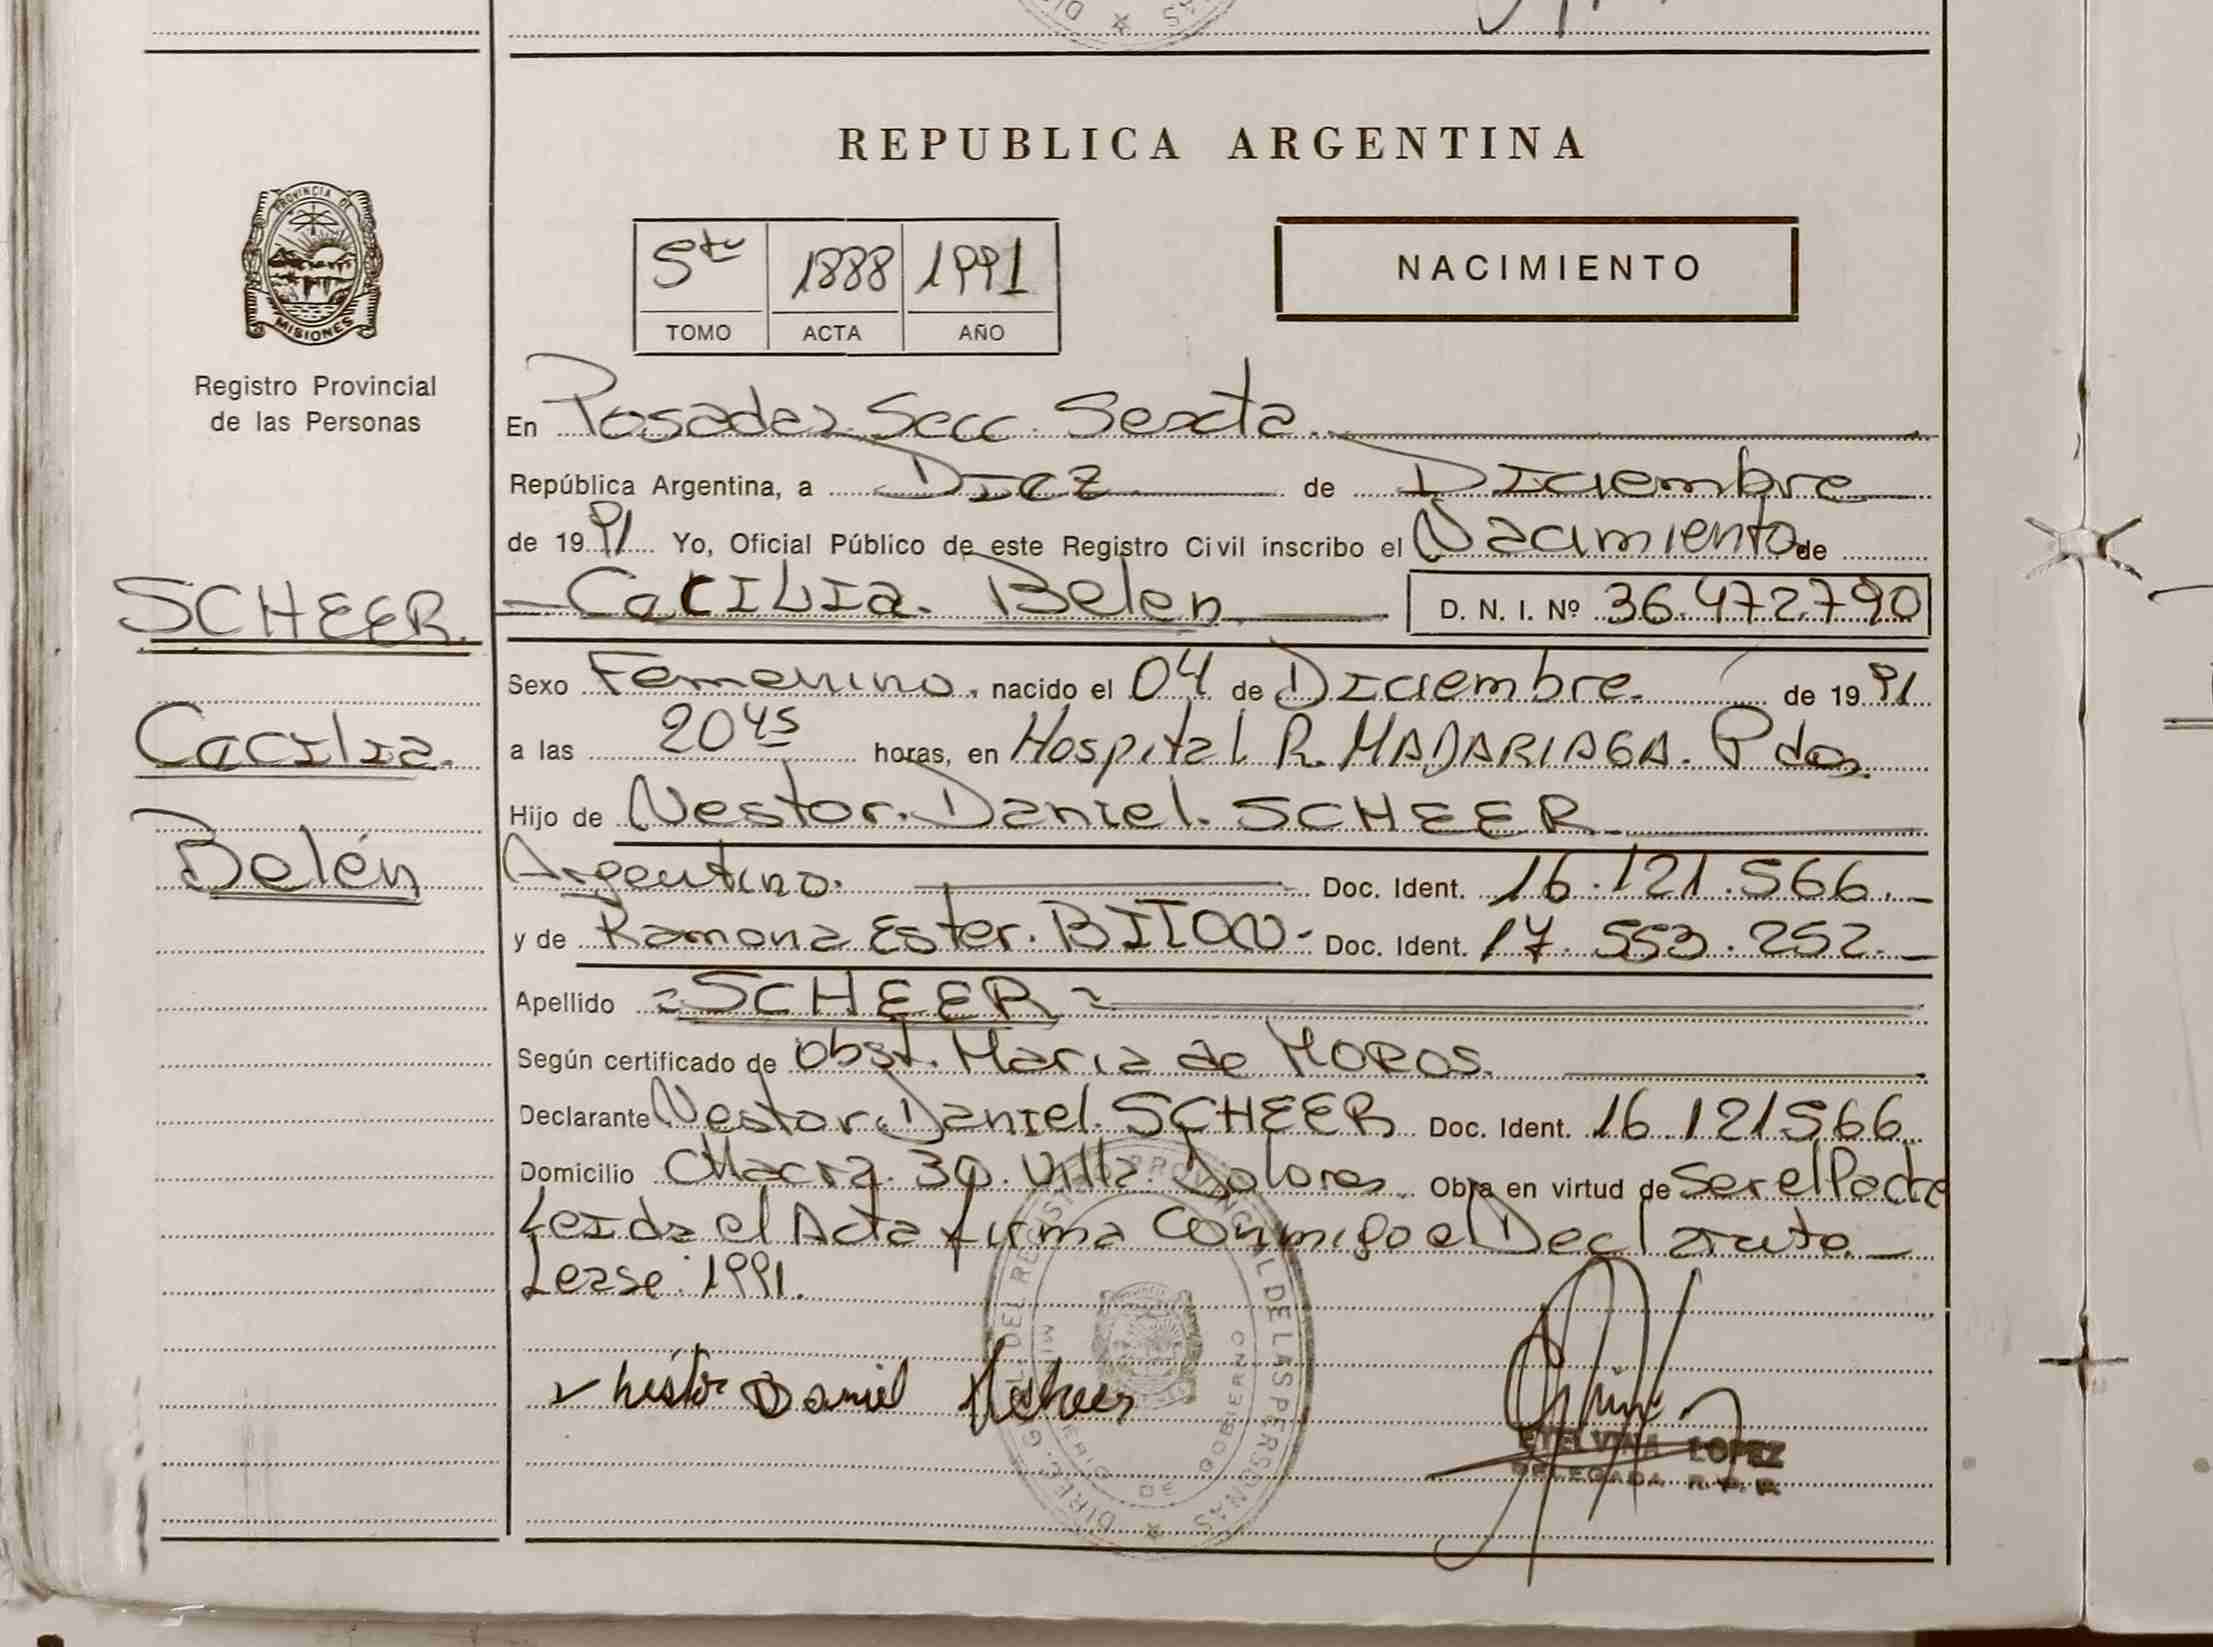 REPUBLICA ARGENTINA
PROVINCIA DE
MISIONES
Registro Provincial
de las Personas
5to 1888 1991
TOMO ACTA AÑO
NACIMIENTO
En Posadas Secc. Sexta.
República Argentina, a Diez de Diciembre
de 1991 Yo, Oficial Público de este Registro Civil inscribo el Nacimiento de
Cecilia Belen D. N. I. Nº 36.472.790
SCHEER
Cecilia.
Belén
Sexo Femenino. nacido el 04 de Diciembre. de 1991
a las 20 45 horas, en Hospital R. MADARIAGA. Pdas.
Hijo de Nestor. Daniel. SCHEER
Argentino. Doc. Ident. 16.121.566.
y de Ramona Ester. Doc. Ident. 17.553.252.
Apellido SCHEER
Según certificado de Obst. Maria de MOROS.
Declarante Nestor. Daniel. SCHEER Doc. Ident. 16.121566
Domicilio Chacra. 30. Villa. Dolores. Obra en virtud de ser el Padre
Leida el Acta firma conmigo el Declarante
Lease: 1991.
Nestor Daniel Scheer
ETELVINA LOPEZ
DELEGADA R.P.P.
DIREC. G DEL REGISTRO PROVINCIAL DE LAS PERSONAS
MINISTERIO DE GOBIERNO